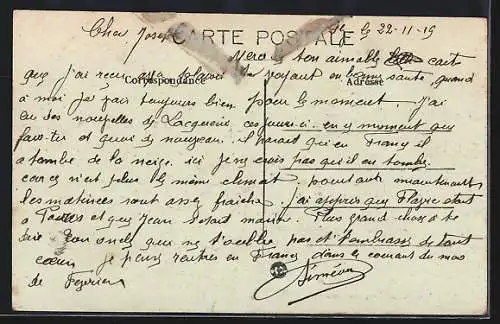 Cher Josef
CARTE POSTALE
le 22-11-19
Merci ton aimable carte
que j'ai reçu avec plaisir te voyant en bonne santé, quand
Correspondance
Adresse
à moi je vais toujours bien pour le moment. J'ai
eu des nouvelles de ces jours-ci. en ce moment que
fais-tu et quoi de nouveau. il parait qu'en France il
a tombé de la neige. ici je ne crois pas qu'il en tombe
car ce n'est plus le même climat. pourtant maintenant
les matinées sont assez fraîches. j'ai appris que était
à et que Jean marié. Plus grand chose à te
dire ton oncle qui ne t'oublie pas et t'embrasse de tout
cœur je pense rentrer en France dans le courant du mois
de Fevrier
Siméon